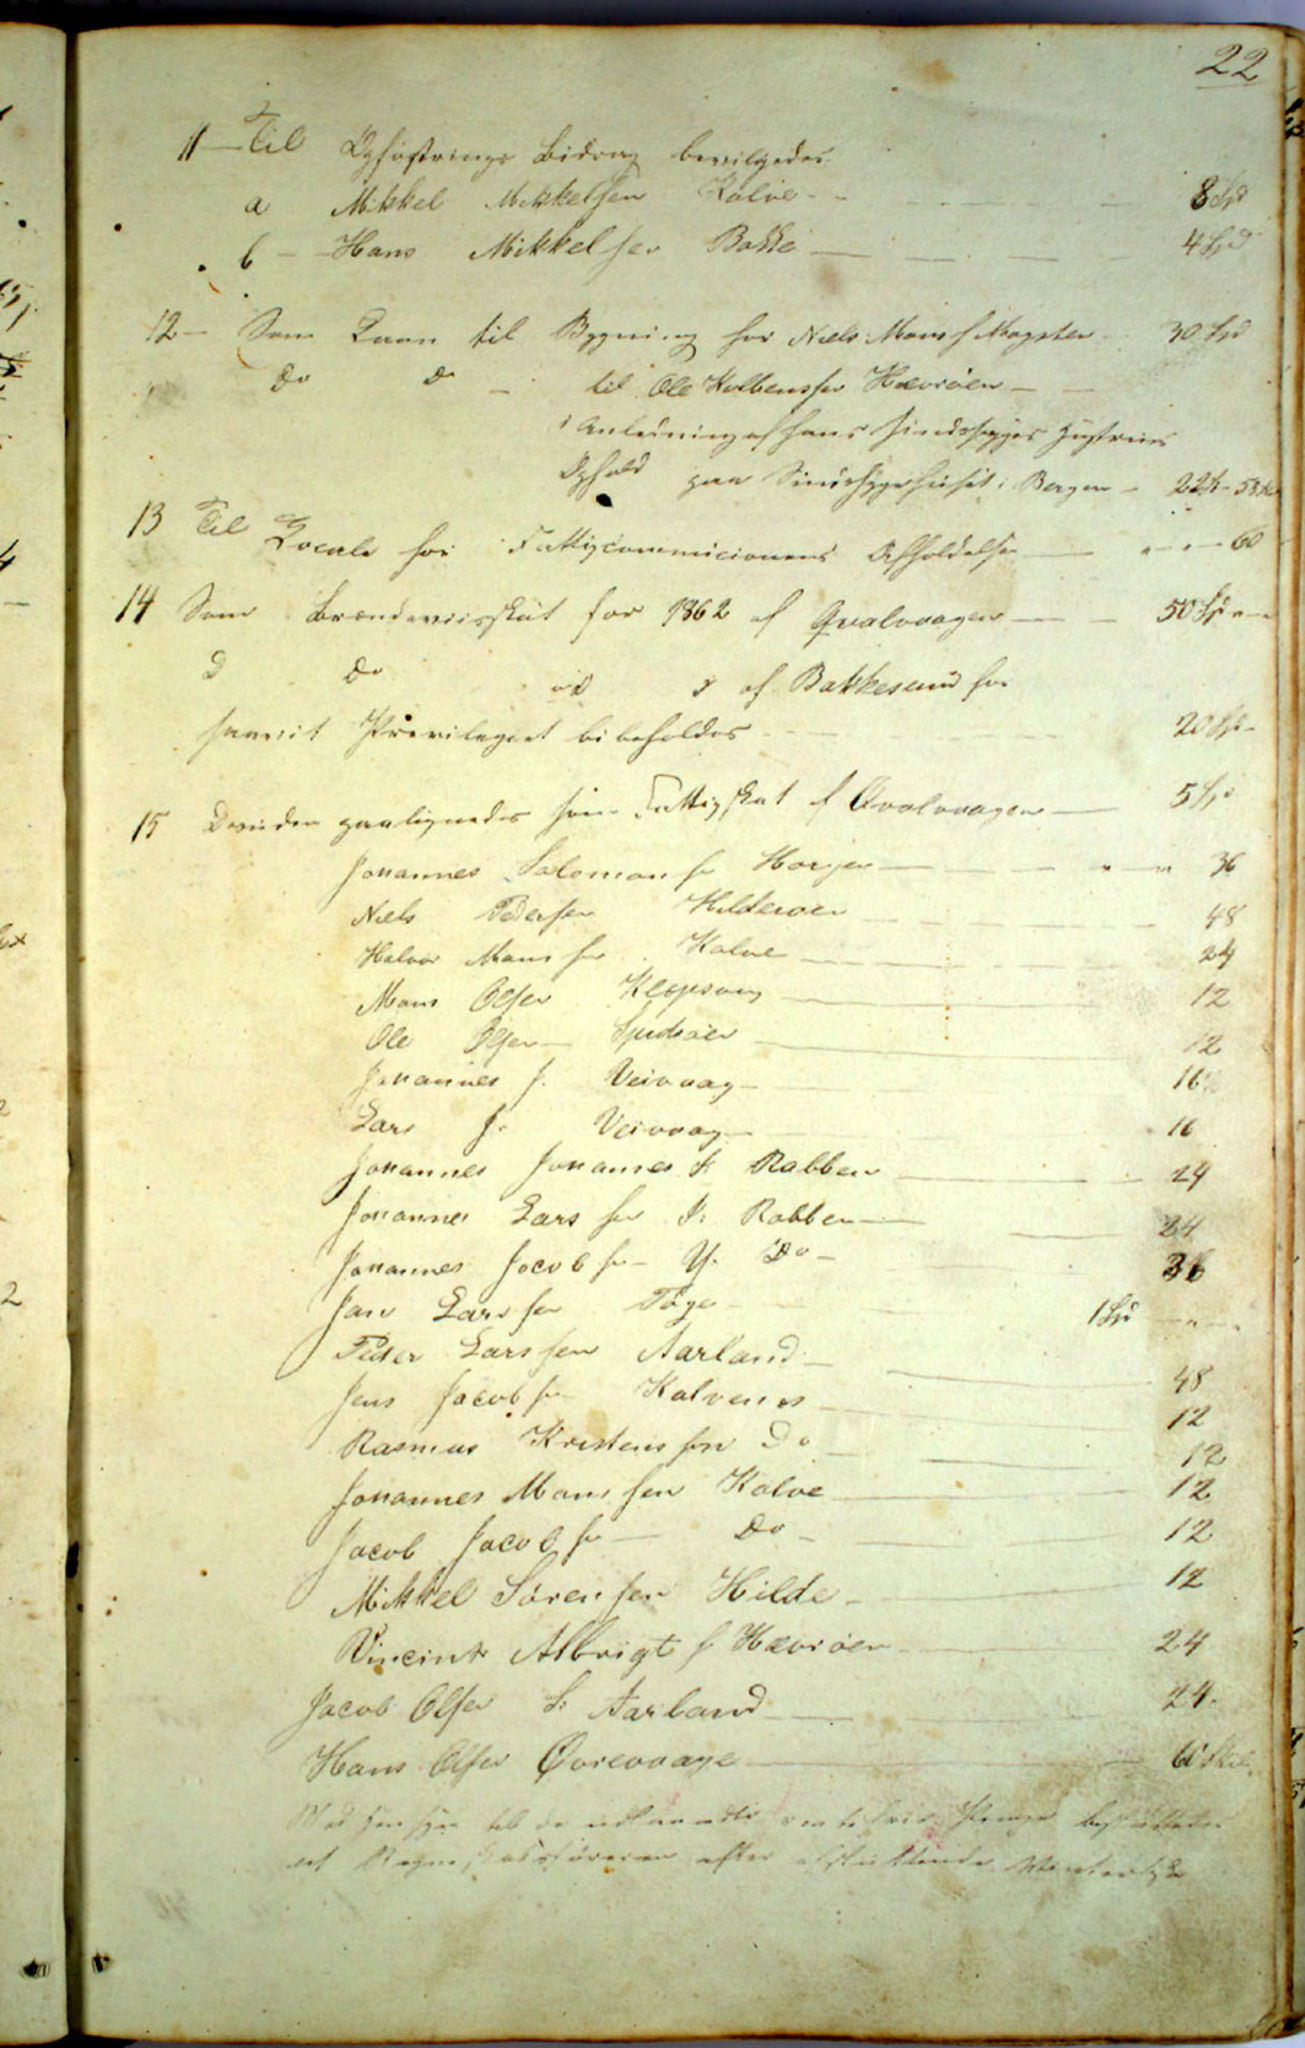 22
11 - Til Opfostrings Bidrag bevilgedes
a Mikkel Mikkelsen Kalve - - 8 Spd
b - Hans Mikkelsen Bakke - 4 Spd
12 - Som Laan til Bygning for Niels Mons s Møgster 30 Spd
Do Do - til Ole Hævrøen -
i Anledning af hans sindssyges Hustrues
Ophold paa Sindssygehuset i Bergen - 22
13 Til Locale for Fattigcommicionens Afholdelse - 60
14 Som Brændeviinsskat for 1862 af Qvalvaagen - 50 Spd
Do af Bakkesund for
saavit Previlegiet bibeholdes 20 Spd
15 Desuden paalignedes som Fattigskat af Qvalvaagen - 5 Spd
Johannes Salomons Horgen - 36
Niels Pedersen Hilderøen 48
Halvor Mons sen Kalve 24
Mons Olsen 12
Ole Olsen - 12
Johannes J. Veivaag - 16
Lars J. Veivaag - 16
Johannes Johannes S: Rabben 24
Johannes Lars sen I: Rabben - 24
Johannes Jacobsen - Y. Do - 36
Jan Larssen Töge 1 Spd
Peder Larssen Aarland - 48
Jens Jacobsen Kalvenes 12
Rasmus Kristenssen Do 12
Johannes Mons sen Kalve 12
Jacob Jacobsen - Do - 12
Mikkel Sörensen Hilde - 12
Vincint Albrigt s Hævrøen 24
Jacob Olsen S: Aarland 24
Hans Olsen Øvrevaage 60
Med Hensyn til de Penge besluttedes
at efter